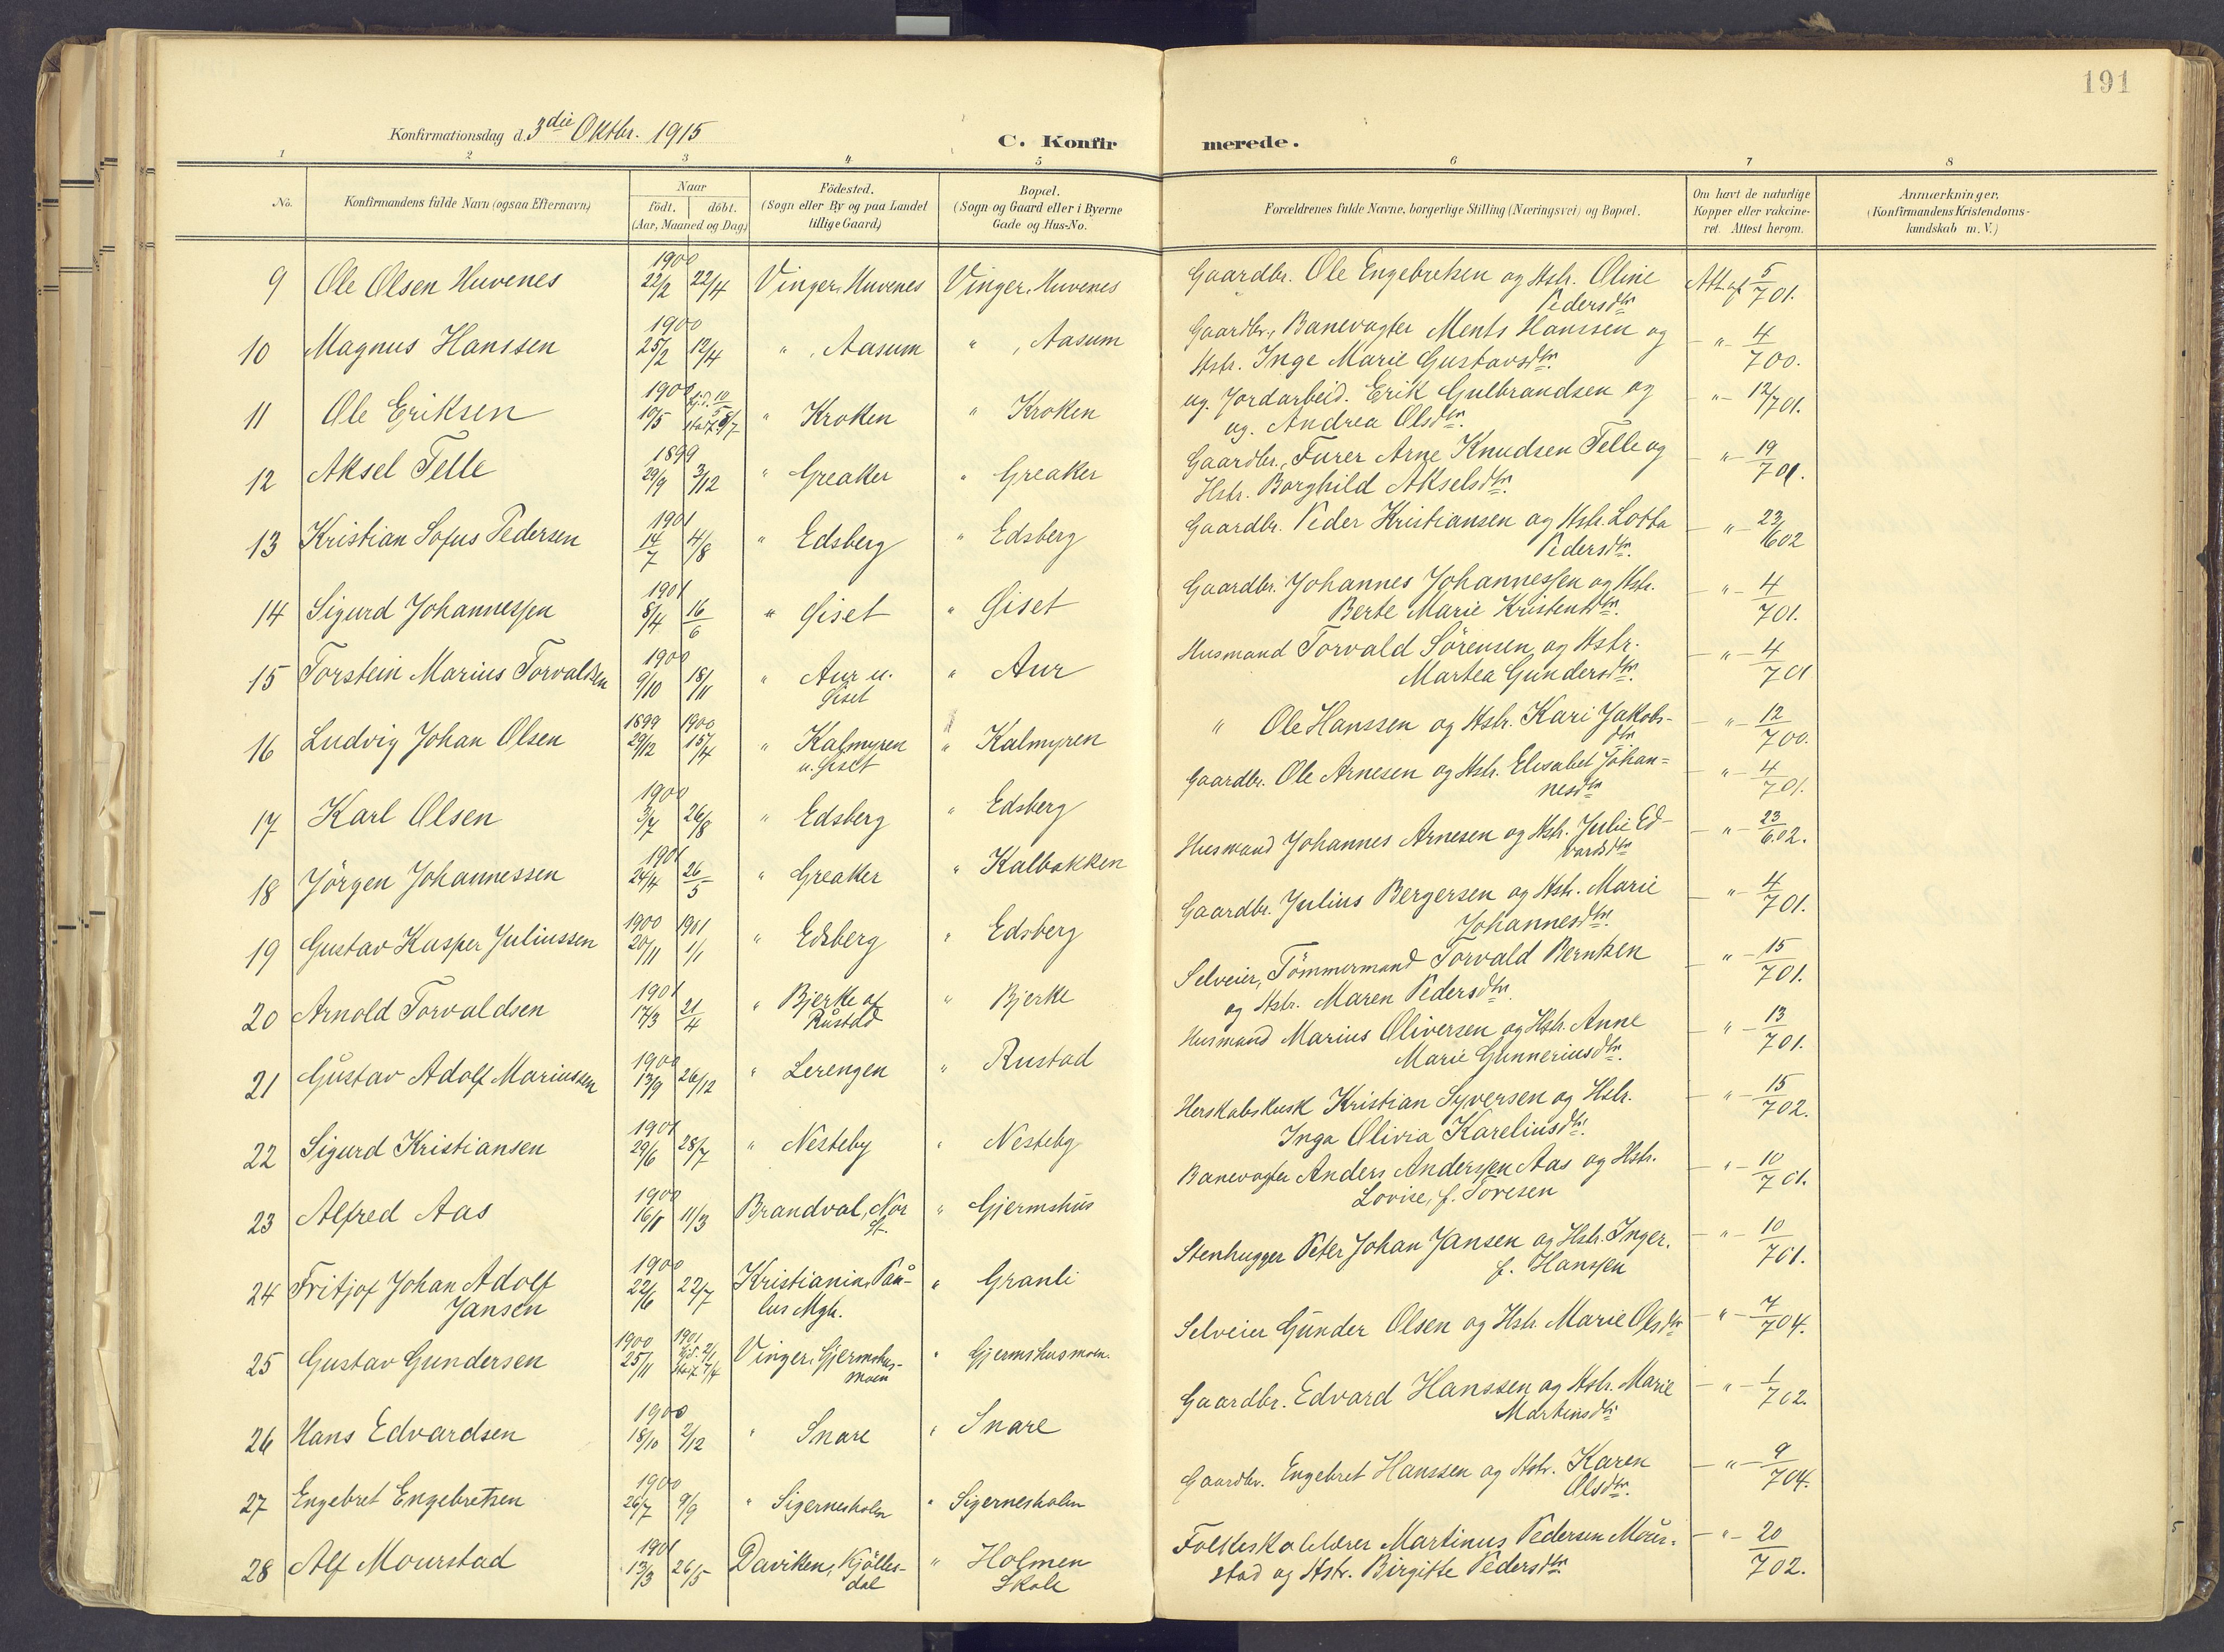 191
Konfirmationsdag d. 3die Oktbr. 1915
C. Konfirmerede.
1 2 3 4 5 6 7 8
No. Konfirmandens fulde Navn (ogsaa Efternavn) Naar Födt. döbt. (Aar, Maaned og Dag) Födested. (Sogn eller By og paa Landet tillige Gaard) Bopæl. (Sogn og Gaard eller i Byerne Gade og Hus-No. Forældrenes fulde Navne, borgerlige Stilling (Næringsvei) og Bopæl. Om havt de naturlige Kopper eller vakcineret. Attest herom. Anmærkninger. (Konfirmandens Kristendomskundskab m. V.)
9 Ole Olsen Huvenes 1900 22/2 22/4 Vinger, Huvenes Vinger, Huvenes Gaardbr. Ole Engebretsen og Hstr. Oline Pedersdtr. Att. af 5/7 01.
10 Magnus Hanssen 1900 25/2 12/4 " , Aasum " , Aasum Gaardbr., Banevogter Ments Hanssen og Hstr. Inge Marie Gustavsdtr. - " - 4/7 00.
11 Ole Eriksen 1900 10/5 hjd. 10/5 stadf. 8/7 " Kroken " Kroken ug. Jordarbeid. Erik Gulbrandsen og ug. Andrea Olsdtr. - " - 12/7 01.
12 Aksel Telle 1899 29/9 3/12 " Greaker " Greaker Gaardbr., Furer Arne Knudsen Telle og Hstr. Borghild Akselsdtr. - " - 19/7 01.
13 Kristian Sofus Pedersen 1901 14/7 4/8 " Edsberg " Edsberg Gaardbr. Peder Kristiansen og Hstr. Lotta Pedersdtr. - " - 23/6 02
14 Sigurd Johannessen 1901 8/4 16/6 " Giset " Giset Gaardbr. Johannes Johannessen og Hstr. Berte Marie Kristensdtr. - " - 4/7 01.
15 Torstein Marius Torvaldsen 1900 9/10 18/11 " Aur u. Giset " Aur Husmand Torvald Sörensen og Hstr. Martea Gundersdtr. - " - 4/7 01
16 Ludvig Johan Olsen 1899 29/12 1900 15/4 " Kalmyren u. Giset " Kalmyren " Ole Hanssen og Hstr. Kari Jakobsdtr - " - 12/7 00.
17 Karl Olsen 1900 3/7 26/8 " Edsberg " Edsberg Gaardbr. Ole Arnesen og Hstr. Elisabet Johannesdtr - " - 4/7 01.
18 Jörgen Johannessen 1901 24/4 26/5 " Greaker " Kalbakken Husmand Johannes Arnesen og Hstr. Julie Edvardsdtr - " - 23/6 02.
19 Gustav Kasper Juliussen 1900 20/11 1901 1/1 " Edsberg " Edsberg Gaardbr. Julius Bergersen og Hstr. Marie Johannesdtr. - " - 4/7 01.
20 Arnold Torvaldsen 1901 17/3 21/4 " Bjerke af Rustad " Bjerke Selveier, Tömmermand Torvald Berntsen og Hstr. Maren Pedersdtr. - " - 15/7 01.
21 Gustav Adolf Mariussen 1900 13/9 26/12 " Lerengen " Rustad Husmand Marius Oliversen og Hstr. Anne Marie Gunneriusdtr. - " - 13/7 01.
22 Sigurd Kristiansen 1901 29/6 28/7 " Nesteby " Nesteby Herskabskusk Kristian Syversen og Hstr. Inga Olivia Kareliusdtr. - " - 15/7 02.
23 Alfred Aas 1900 16/1 11/3 Brandval, Nor St. " Gjermshus Banevogter Anders Anderssen Aas og Hstr. Lovise, f. Toresen - " - 10/7 01.
24 Fritjof Johan Adolf Jansen 1900 22/6 22/7 Kristiania, Paulus Mgh. " Granli Stenhugger Peter Johan Jansen og Hstr. Inger, f. Hanssen - " - 10/7 01.
25 Gustav Gundersen 1900 25/11 1901 hjd. 2/1 stadf. 7/4 Vinger, Gjermshusmoen " Gjermshusmoen. Selveier Gunder Olsen og Hstr. Marie Olsdtr - " - 7/7 04.
26 Hans Edvardsen 1900 18/10 2/12 " Snare " Snare Gaardbr. Edvard Hanssen og Hstr. Marie Martinsdtr - " - 1/7 02.
27 Engebret Engebretsen 1900 26/7 9/9 " Sigernesholm " Sigernesholm Gaardbr. Engebret Hanssen og Hstr. Karen Olsdtr. - " - 9/7 04.
28 Alf Mourstad 1901 13/3 26/5 Daviken, Kjöllesdal " Holmen Skole Folkeskolelærer Martinus Pedersen Mourstad og Hstr. Birgitte Pedersdtr. - " - 20/7 02.